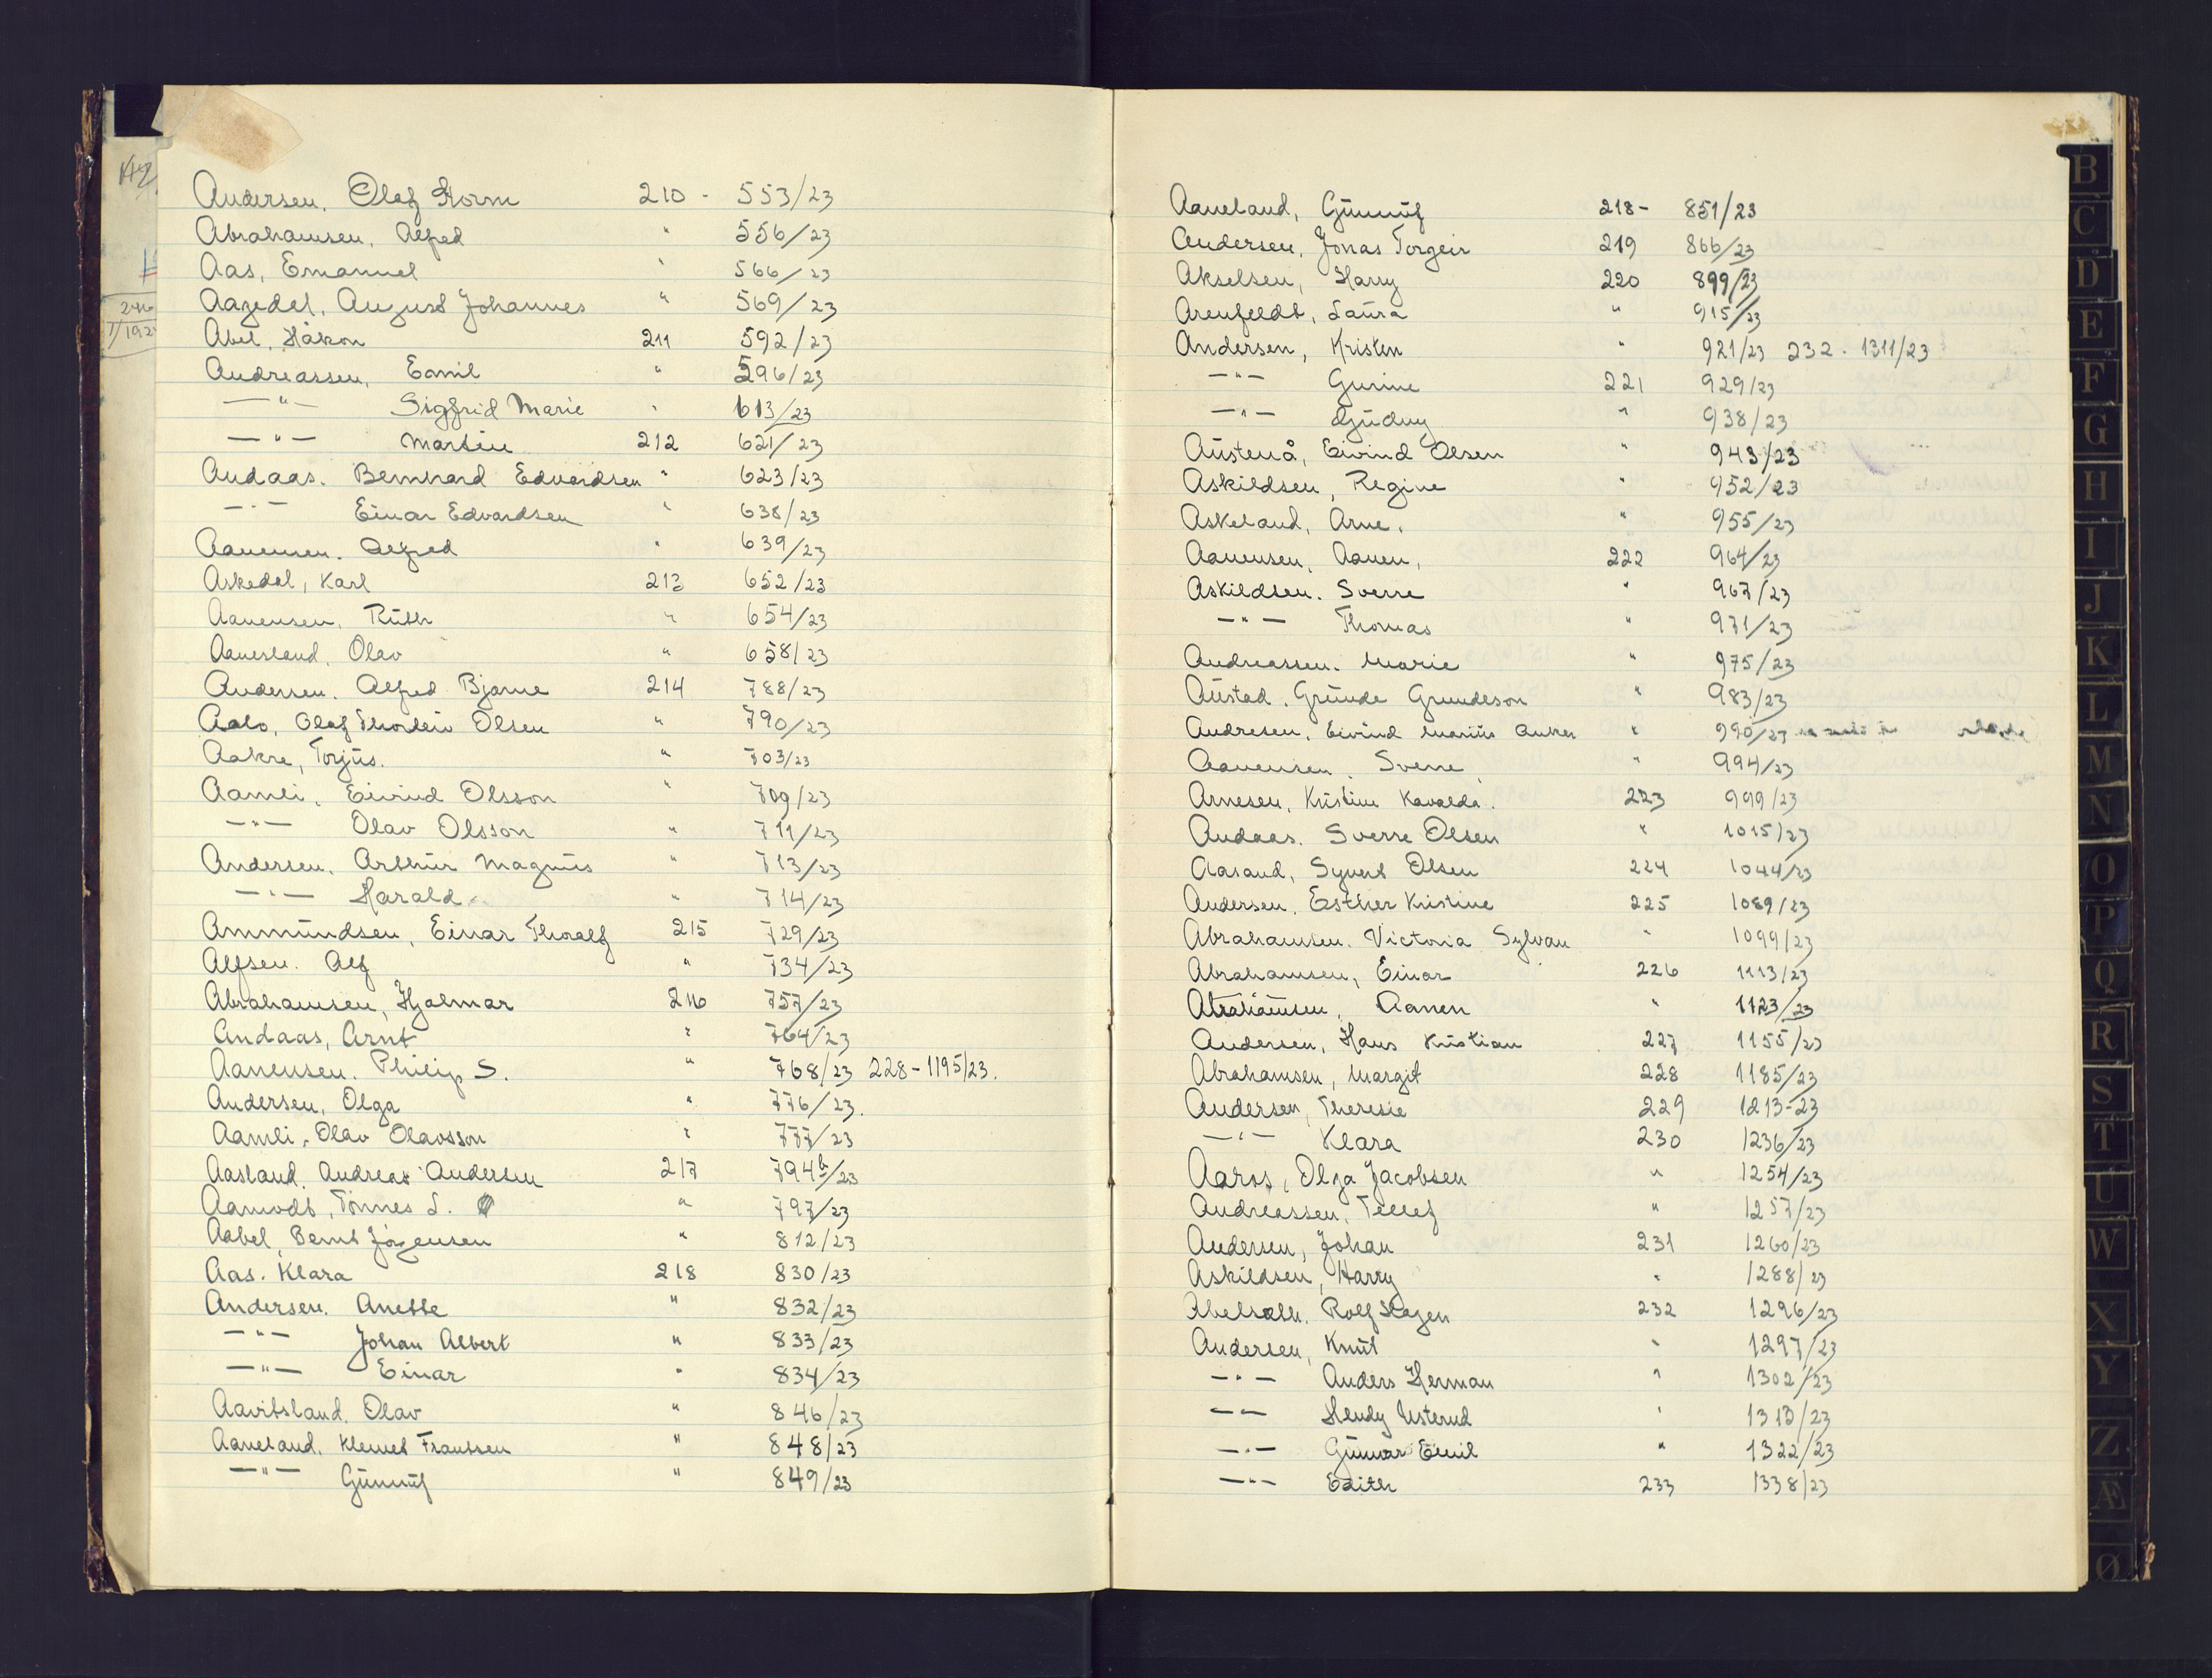 Andersen. Olaf Storm 210 - 553/23
Abrahamsen, Alfred " 556/23
Aas, Emanuel " 566/23
Aagedal, August Johannes " 569/23
Abel, Håkon 211 592/23
Andreassen, Emil " 596/23
—"— Sigfrid Marie " 613/23
—"— Martin 212 621/23
Andaas. Bernhard Edvardsen " 623/23
—"— Einar Edvardsen " 638/23
Aanensen. Alfred " 639/23
Askedal, Karl 213 652/23
Aanensen, Ruth " 654/23
Aanesland, Olav " 658/23
Andersen. Alfred Bjarne 214 788/23
Aalo, Olaf Thorleiv Olsen " 790/23
Aakre, Torjus. " 703/23
Aamli, Eivind Olsson " 709/23
—"— Olav Olsson " 711/23
Andersen. Arthur Magnus " 713/23
—"— Harald " 714/23
Ammundsen, Einar Thoralf 215 729/23
Alfsen. Alf " 734/23
Abrahamsen, Hjalmar 216 757/23
Andaas, Arnt " 764/23
Aanensen. Philip S. " 768/23 228-1195/23.
Andersen, Olga " 776/23.
Aamli, Olav Olavsson " 777/23
Aasland. Andreas Andersen 217 794b/23
Aamodt, Tönnes L. " 797/23
Aabel, Bernt Jörgensen " 812/23
Aas. Klara 218 830/23
Andersen. Anette " 832/23
—"— Johan Albert " 833/23
—"— Einar " 834/23
Aavitsland. Olav " 846/23
Aaneland. Klemet Frantsen " 848/23
—"— Gunnuf " 849/23
Aaneland, Gunnuf 218- 851/23
Andersen, Jonas Torgeir 219 866/23
Akselsen, Harry 220 899/23
Arenfeldt, Laura " 915/23
Andersen, Kristen " 921/23 232. 1311/23
—"— Gurine 221 929/23
—"— Gudny " 938/23
Austenå, Eivind Olsen " 943/23
Askildsen, Regine " 952/23
Askeland, Arne. " 955/23
Aanensen, Aanen, 222 964/23
Askildsen. Sverre " 967/23
—"— Thomas " 971/23
Andreassen. Marie " 975/23
Austad. Grunde Grundeson " 983/23
Andresen. Eivind Marius " 990/23
Aanensen. Sverre " 994/23
Arnesen, Kristine 223 999/23
Andaas. Sverre Olsen " 1015/23
Aasand, Syvert Olsen 224 1044/23
Andersen. Esther Kristine 225 1089/23
Abrahamsen. Victoria Sylvan " 1099/23
Abrahamsen, Einar 226 1113/23
Abrahamsen, Aanen " 1123/23
Andersen, Hans Kristian 227 1155/23
Abrahamsen, Margit 228 1185/23
Andersen, Theresie 229 1213-23
—"— Klara 230 1236/23
Aaros, Olga Jacobsen " 1254/23
Andreassen, Tellef " 1257/23
Andersen, Johan 231 1260/23
Askildsen, Harry " 1288/23
Rolf Hagen 232 1296/23
Andersen, Knut " 1297/23
—"— Anders Herman " 1302/23
—"— Usterud " 1313/23
—"— Gunnar Emil " 1322/23
—"— Edith 233 1338/23
B
C
D
E
F
G
H
I
J
K
L
M
N
O
P
Q
R
S
T
U
W
X
Y
Z
Æ
Ø